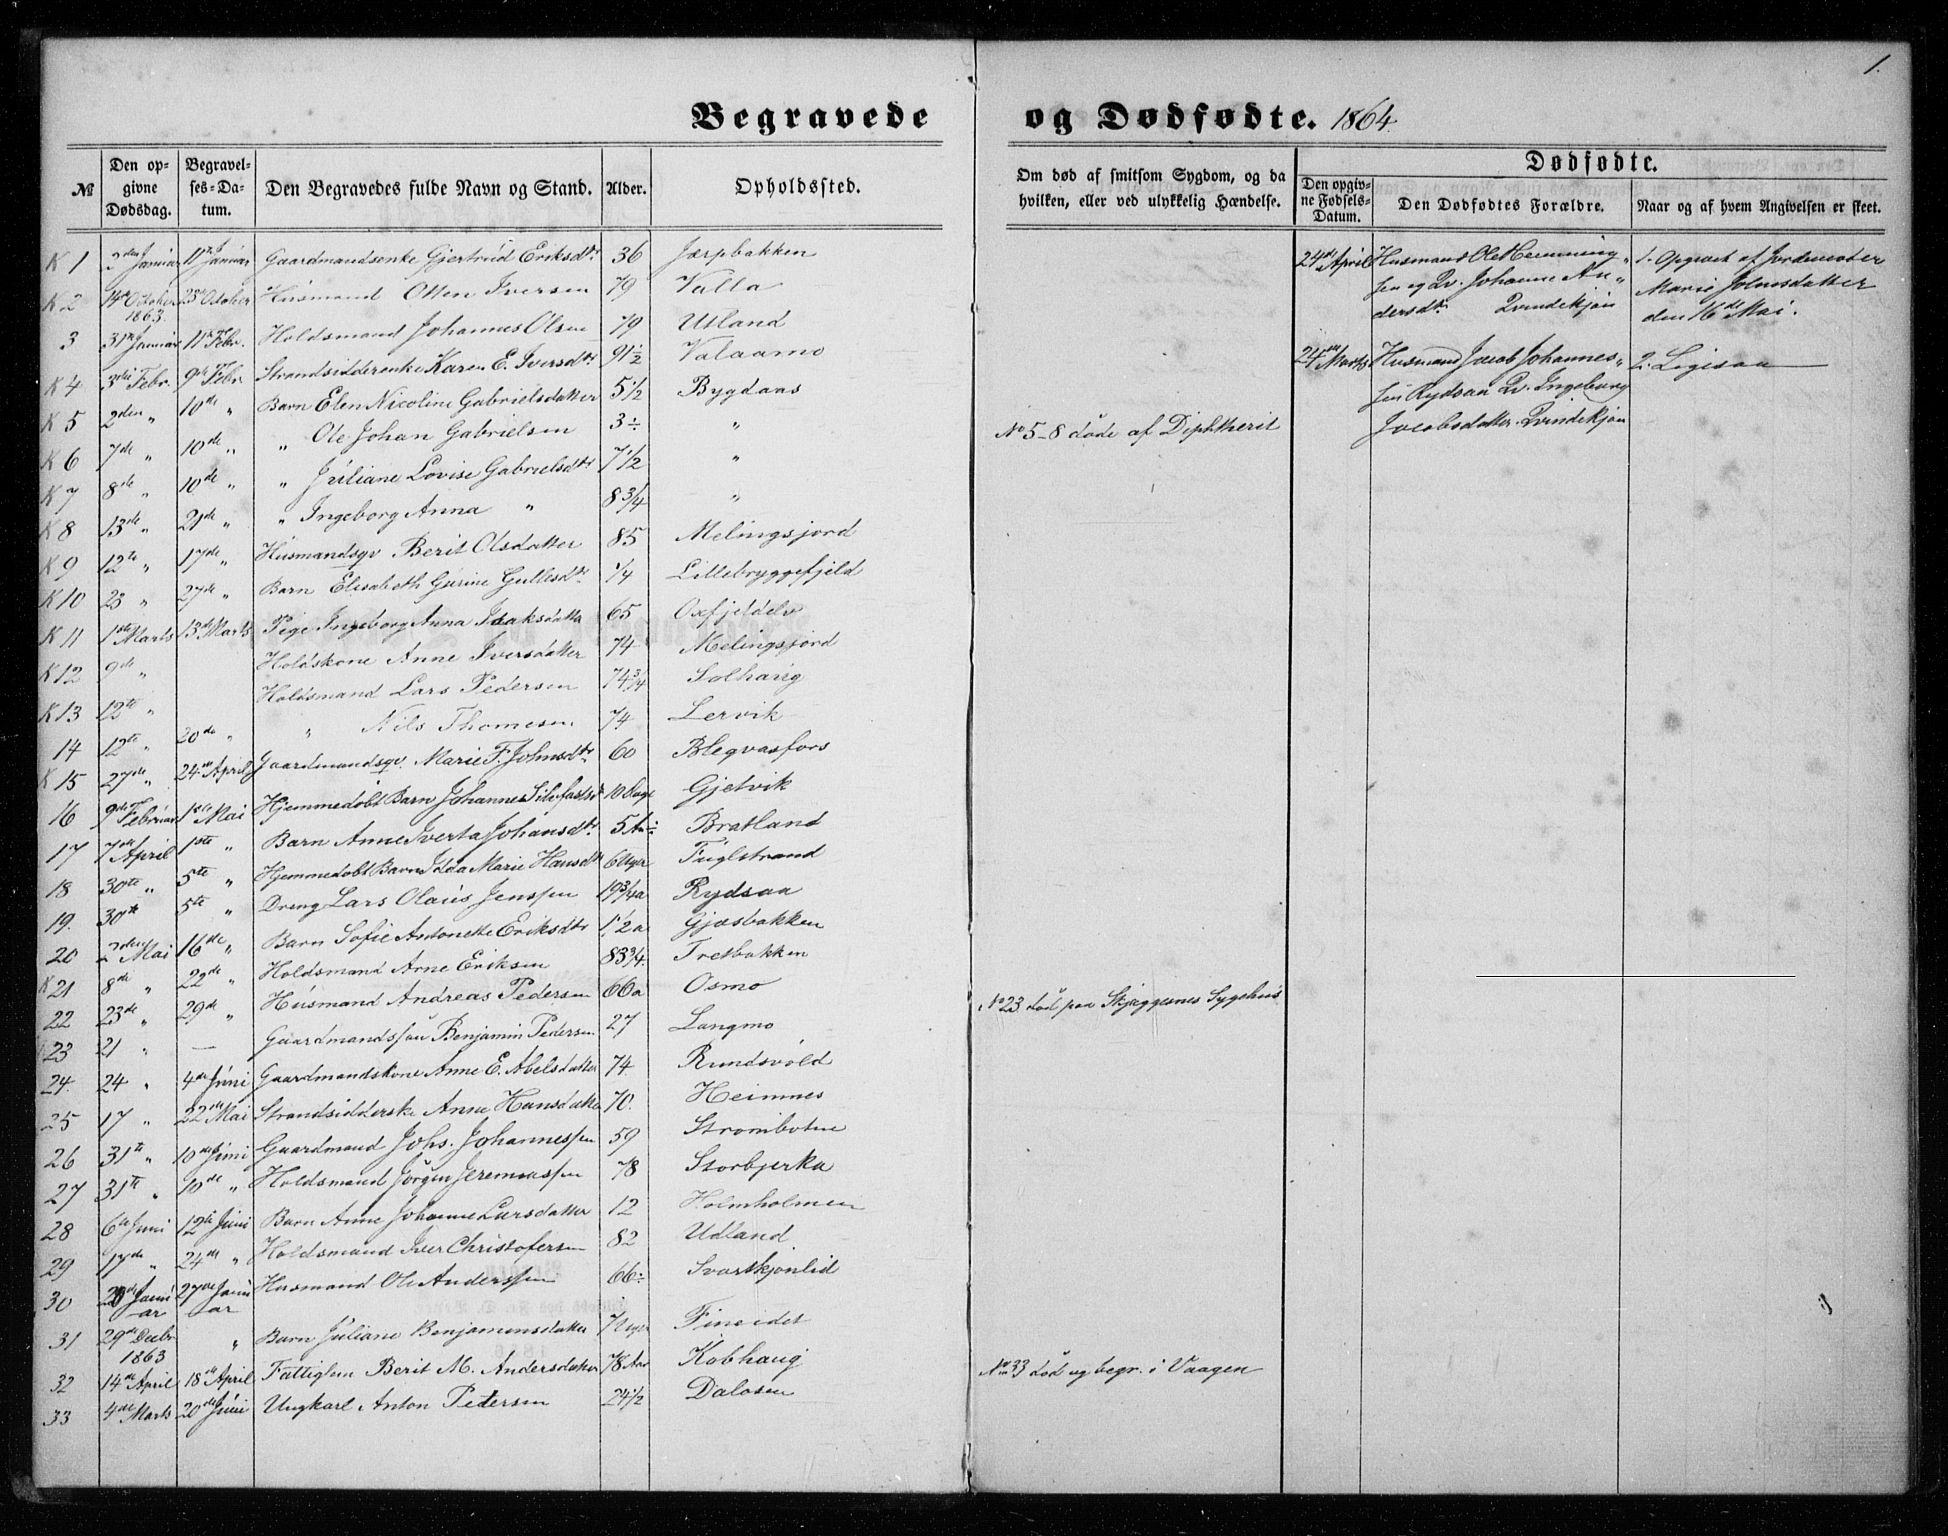 1.
Begravede og Dødfødte. 1864.
№
Den opgivne Dødsdag.
Begravelses-Datum.
Den Begravedes fulde Navn og Stand.
Alder.
Opholdssted.
Om død af smitsom Sygdom, og da hvilken, eller ved ulykkelig Hændelse.
Dødfødte.
Den opgivne Fødsels-Datum.
Den Dødfødtes Forældre.
Naar og af hvem Angivelsen er skeet.
K 1 3den Januar 11te Januar Gaardmandsenke Gjertrud Eriksdtr 36 Jærpbakken
K 2 14de October 1863. 23de October Husmand Otten Iversen 79 Valla
3 31te Januar 11te Febr. Holdsmand Johannes Olsen 79 Utland
K 4 3die Febr. 9de Febr Strandsidderenke Karen E. Iversdtr 91 1/2 Valaamo
K 5 2den " 10de " Barn Elen Nicoline Gabrielsdatter 5 1/2 Bygdaas
K 6 7de " 10de " " Ole Johan Gabrielsen 3 ÷ "
K 7 8de " 10de " " Juliane Lovise Gabrielsdtr 7 1/2 "
K 8 13de " 21de " " Ingeborg Anna " 8 3/4 "
K 9 12te " 17de " Husmandsqv Berit Olsdatter 85 Melingsjord
K 10 23 " 27de " Barn Elisabeth Gurine Gullesdtr 1/4 Lillebryggefjeld
K 11 1ste Marts 13de Marts Pige Ingeborg Anna Isaksdatter 65 Oxfjeldelv
K 12 9de " Holdskone Anne Iversdatter 74 Melingsjord
K 13 12te " Holdsmand Lars Pedersen 74 3/4 Solhaug
14 12te " 20de " " Nils Thomesen 74 Lervik
K 15 27de " 24de April Gaardmandsqv. Marie F. Johnsdtr 60 Blegvasfors
16 9de Februar 1ste Mai Hjemmedøbt Barn Johannes Silvfastsøn 10 Dage Gjetvik
17 7de April 1ste " Barn Anne Iverta Johansdtr 5 Aar ÷ Bratland
18 30te " 5te " Hjemmedøbt Barn Idda Marie Hansdtr 6 Uger Fuglstrand
19. 30te 5te " Dreng Lars Olaus Jenssen 19 3/4 a Rydsaa
20 2den Mai 16de " Barn Sofie Antonette Eriksdtr 1 1/2 a Gjæsbakken
K 21 8de " 22de " Holdsmand Arne Eriksen 83 3/4. Tretbakken
22 23de " 29de " Husmand Andreas Pedersen 66 a Osmo
23 21 " — Gaardmandssøn Benjamin Pedersen 27 Langmo
24. 24 " 4de Juni Gaardmandskone Anne E. Abelsdatter 74 Rundsvold
25 17 " 22de Mai Strandsidderske Anne Hansdatter 70. Heimnes
26 31te " 10de Juni Gaardmand Johs. Johannessen 59 Strombotne
27 31te " 10de " Holdsmand Jørgen Jeremiassen 78 Storbjerka
28 6te Juni 12te Juni Barn Anne Johanne Larsdatter 12 Holmholmen
29 17de " 24de " Holdsmand Iver Christofersen 82 Udland
30 20de Januar 27de Januar Husmand Ole Anderssen 66 ÷ Svartkjønlid
31 29de Decbr 1863 " Barn Juliane Benjaminsdatter 7 Uger Fineidet
32 14de April 18de April Fattiglem Berit M. Andersdatter 78 Aar Kobhaug
33 4de Marts 20de Juni Ungkarl Anton Pedersen 24 1/2 Dalosen
No 5-8 døde af Diphtherit
No 23 død paa Skjæggesnes Sygehus
No 33 død og begr. i Vaagen
24de April Husmand Ole Hemmingsen og Qv. Johanne Andersdtr Qvindekjøn
1. Opgivet af Jordemoder Marie Johnsdatter den 16de Mai.
24de Marts Husmand Jacob Johannessen Rydsaa Qv. Ingeborg Jacobsdatter. Qvindekjøn
2. Ligesaa